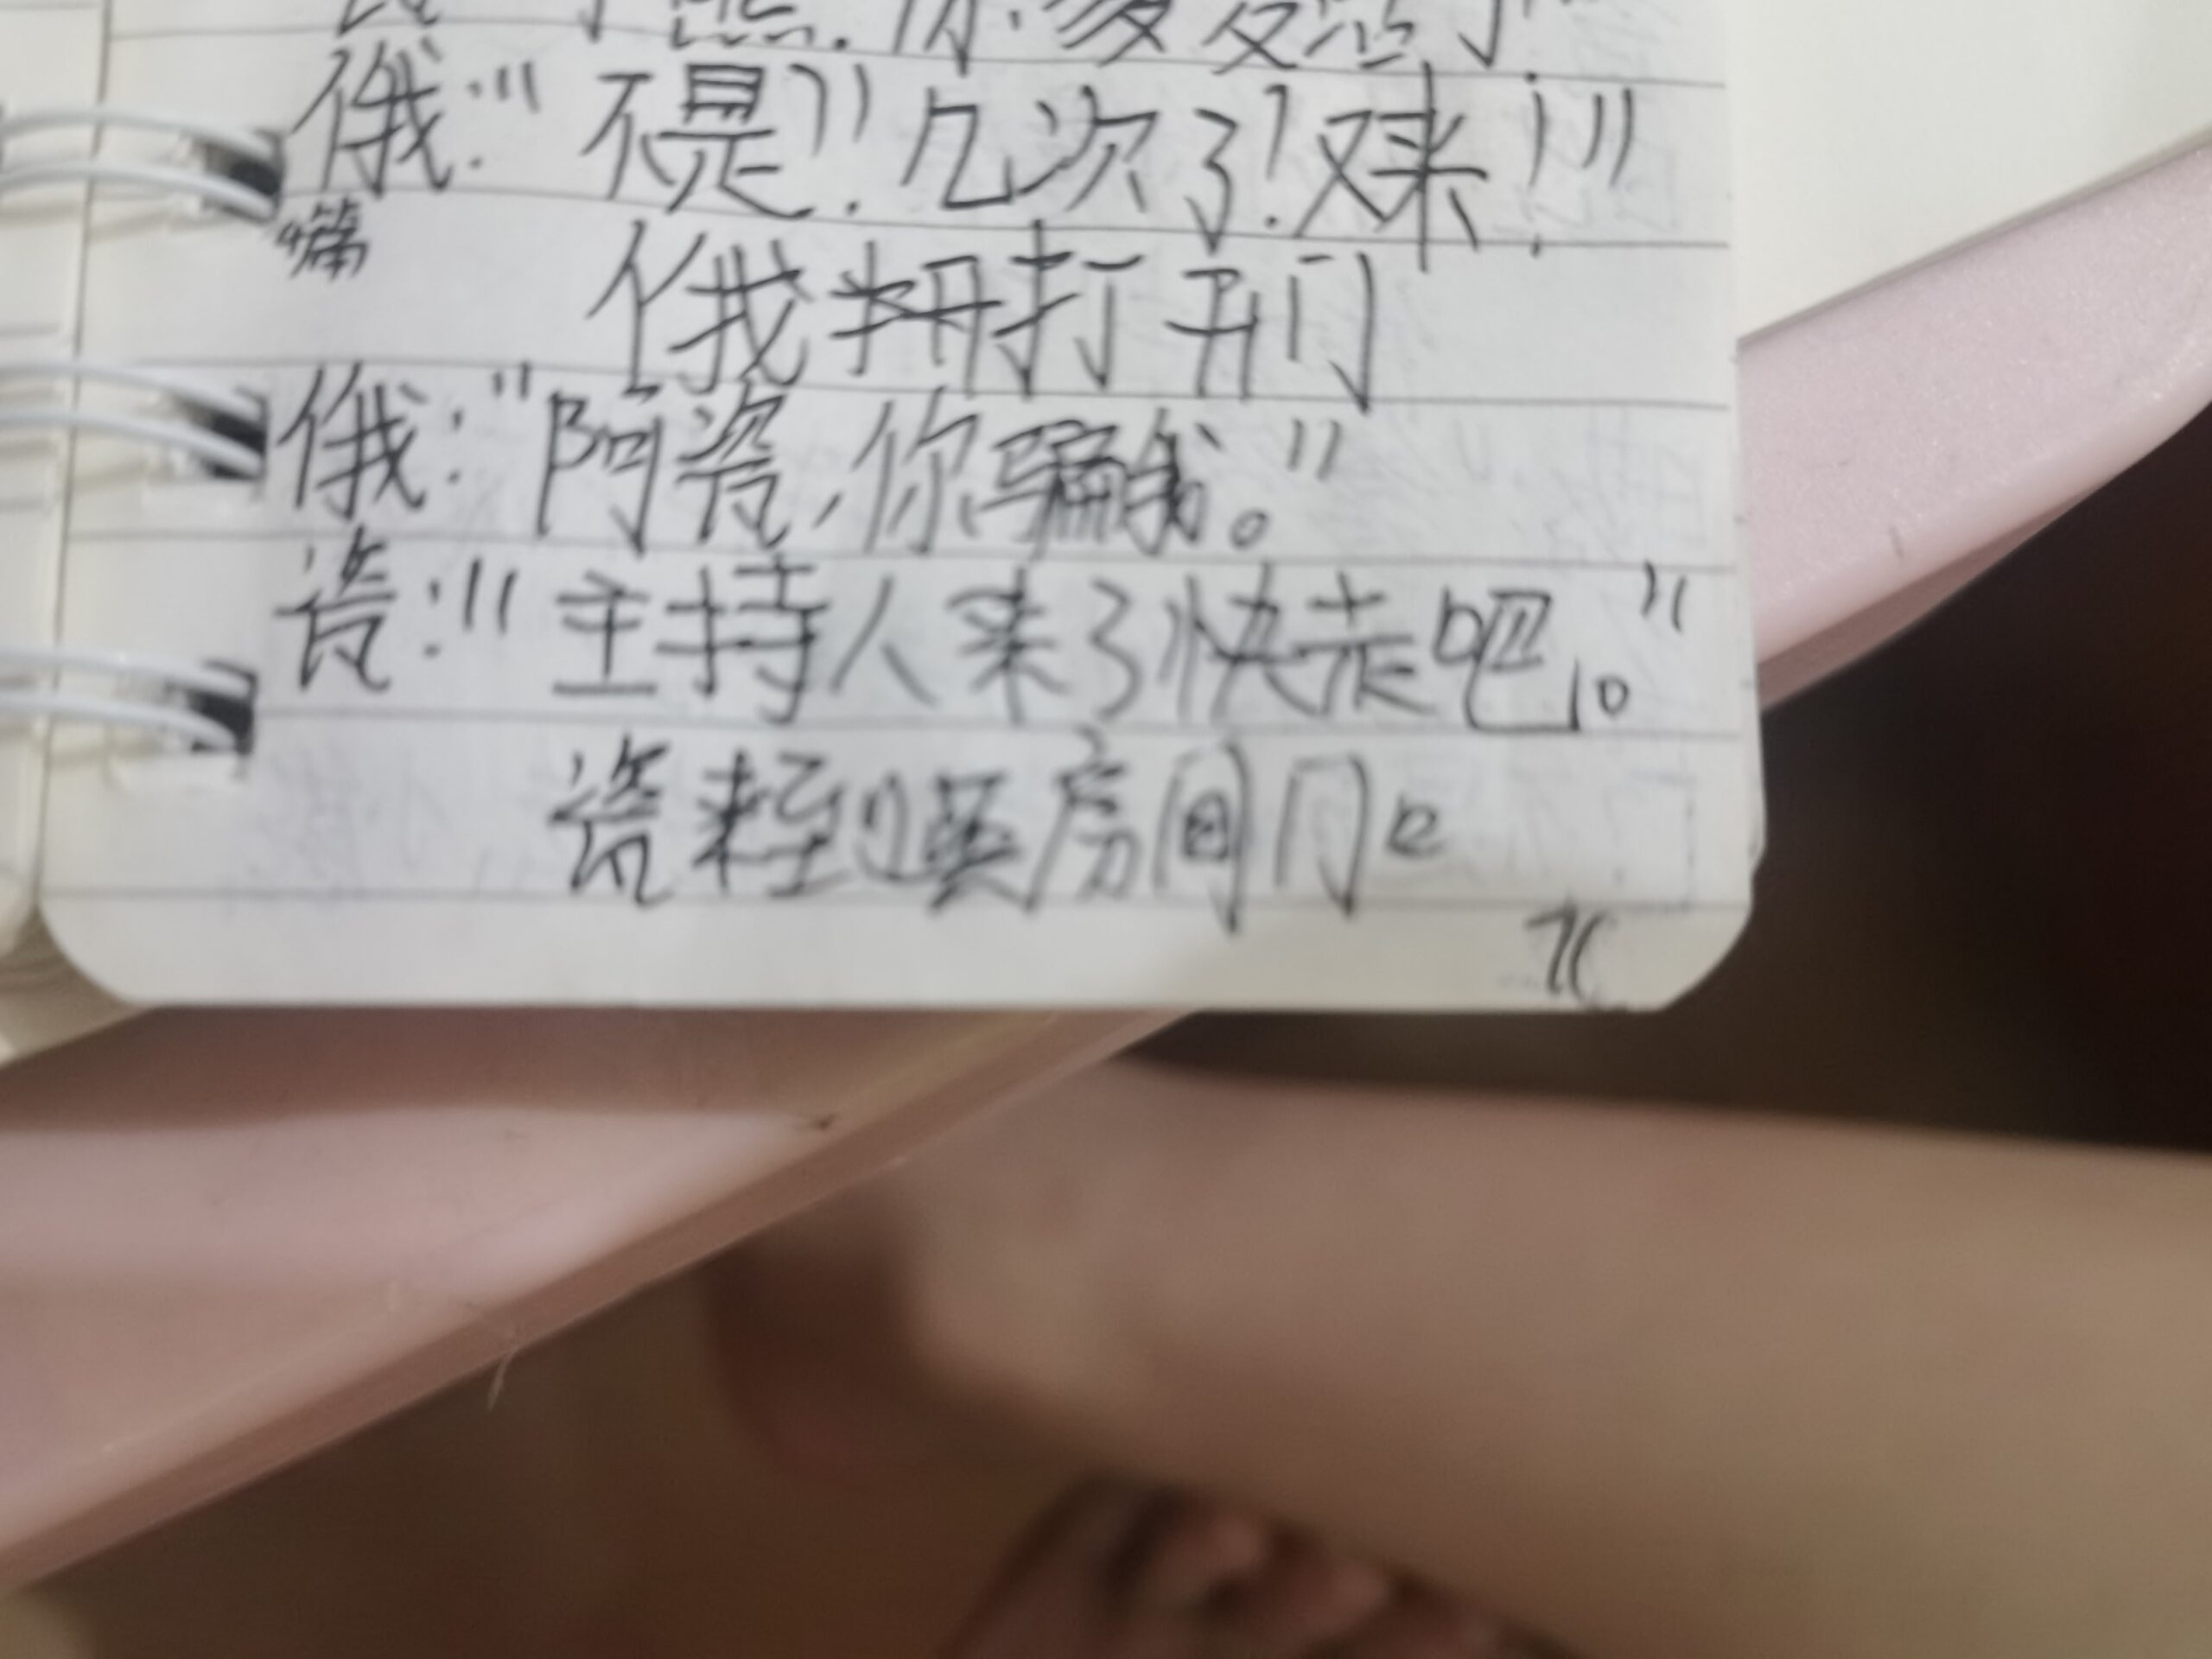 俄:"不是?!几次了!又来!"
俄将打开门
俄:"阿瓷,你骗我。"
瓷:"主持人来了快走吧。"
瓷来到英房间门口